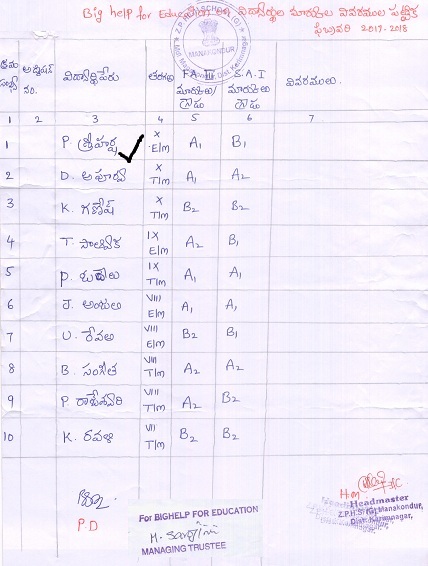 Big help for Education వారి విద్యార్థుల మార్కుల వివరముల పట్టిక
ఫిబ్రవరి 2017-2018
Z.P.H. SCHOOL (G)
MANAKONDUR
క్రమ సంఖ్య అడ్మిషన్ నం. విద్యార్థి పేరు తరగతి F.A III మార్కులు/గ్రేడు S.A. I మార్కులు గ్రేడు వివరములు.
1 2 3 4 5 6 7
1 P. శ్రీహర్ష X E/m A1 B1
2 D. అపూర్వ X T/m A1 A2
3 K. గణేష్ X T/m B2 B2
4 T. సాత్విక IX E/m A2 B1
5 P. IX T/m A1 A1
6 J. అంజలి VIII E/m A1 A1
7 U. రేవలి VIII E/m B2 B1
8 B. సంగీత VIII T/m A2 A2
9 P. రాజేశ్వరి VII T/m A2 B2
10 K. రవళి VI T/m B2 B2
P.D
For BIGHELP FOR EDUCATION
MANAGING TRUSTEE
H.m
Headmaster
Z.P.H.S (G) Manakondur,
Dist: Karimnagar,